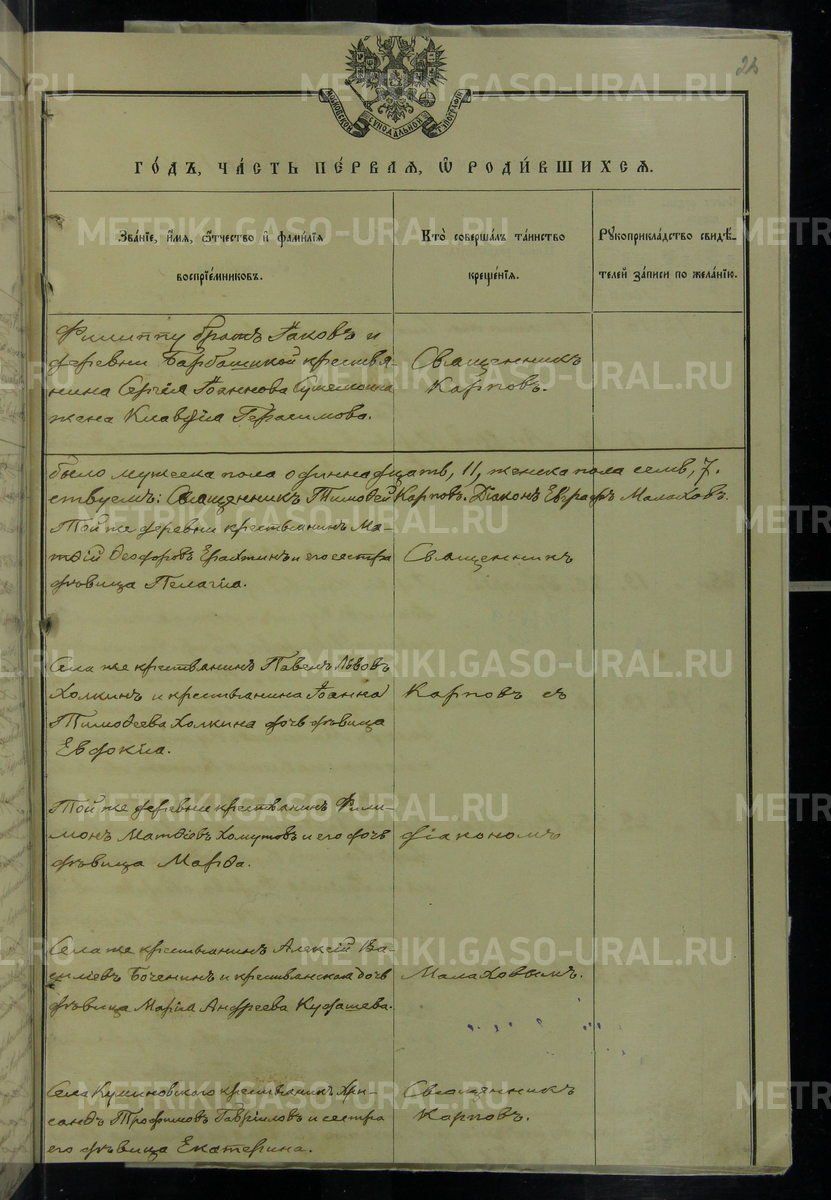 26
МОСКОВСКОЙ СѴНОДАЛЬНОЙ ТИПОГРАФІИ
ГО́ДЪ, ЧА́СТЬ ПЕ́РВАѦ, Ѡ҆ РОДИ́ВШИХСѦ.
Зва́нїе, и҆́мѧ, ѻ҆́тчество и҆ фами́лїѧ
воспрїе́мниковъ.
Кто̀ соверша́лъ та́инство
креще́нїѧ.
Рꙋкоприкла́дство свидѣ́-
телей за́писи по жела́нїю.
Филиппу братъ Іаковъ и
деревни Барбашкой крестья-
нина Сергія Іоаннова
жена Клавдія Герасимова.
Священникъ
Карповъ.
было мужеска пола одиннадцать, 11, женска пола семь, 7.
ствуемъ: Священникъ Тимофей Карповъ. Діаконъ Евграфъ Малаховъ.
Той же деревни крестьянинъ Ма-
тѳій Ѳеодоровъ и его сестра
дѣвица Пелагія.
Священникъ
Села же крестьянинъ Павелъ Львовъ
Холкинъ и крестьянина Іоанна
Тимоѳеева Холкина дочь дѣвица
Евдокія.
Карповъ съ
Той же деревни крестьянинъ Фили-
монъ Матѳіевъ Хомутовъ и его дочь
дѣвица Марѳа.
діакономъ
Села же крестьянинъ Алексій Ва-
сильевъ Боченинъ и крестьянская дочь
дѣвица Марія Андреева Кудашева.
Малаховымъ.
Села Куминовского крестьянинъ Хри-
сандъ Трофимовъ Гавріиловъ и сестра
его дѣвица Екатерина.
Священникъ
Карповъ.
METRIKI.GASO-URAL.RU